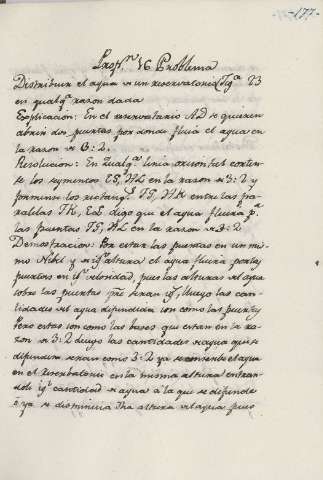 -177-
Prop.ⁿ 16 Problema
Distribuir el agua de un reservatorio Fig.ª 23
en qualq.ª razon dada
Explicacion: En el reservatorio AD se quieren
abrir dos puertas por donde fluia el agua en
la razon de 3:2.
Resolucion: En qualq.ª linia orizontal corten-
se los segmentos EG, HL en la razon de 3:2 y
formense los rectang.ˢ FG, HK entre las pa-
ralelas digo que el agua fluira p.ʳ
las puertas FG, HL en la razon de 3:2
Demostracion: Por estar las puertas en un mis-
mo Nibel y de ig.ˡ altura el agua fluira por las
puertas en ig.ˡ velocidad, pues las alturas del agua
sobre las puertas seran ig.ˢ, luego las can-
tidades del agua difundida son como las puertas
Pero estas son como las bases que estan en la ra-
zon de 3:2 luego las cantidades de agua que se
difunden seran como 3:2 ya se conserbe el agua
en el Reserbatorio en la misma altura entran-
dole ig.ˡ cantidad de agua á la que se difunde
ó ya se disminuia dha altura del agua pues